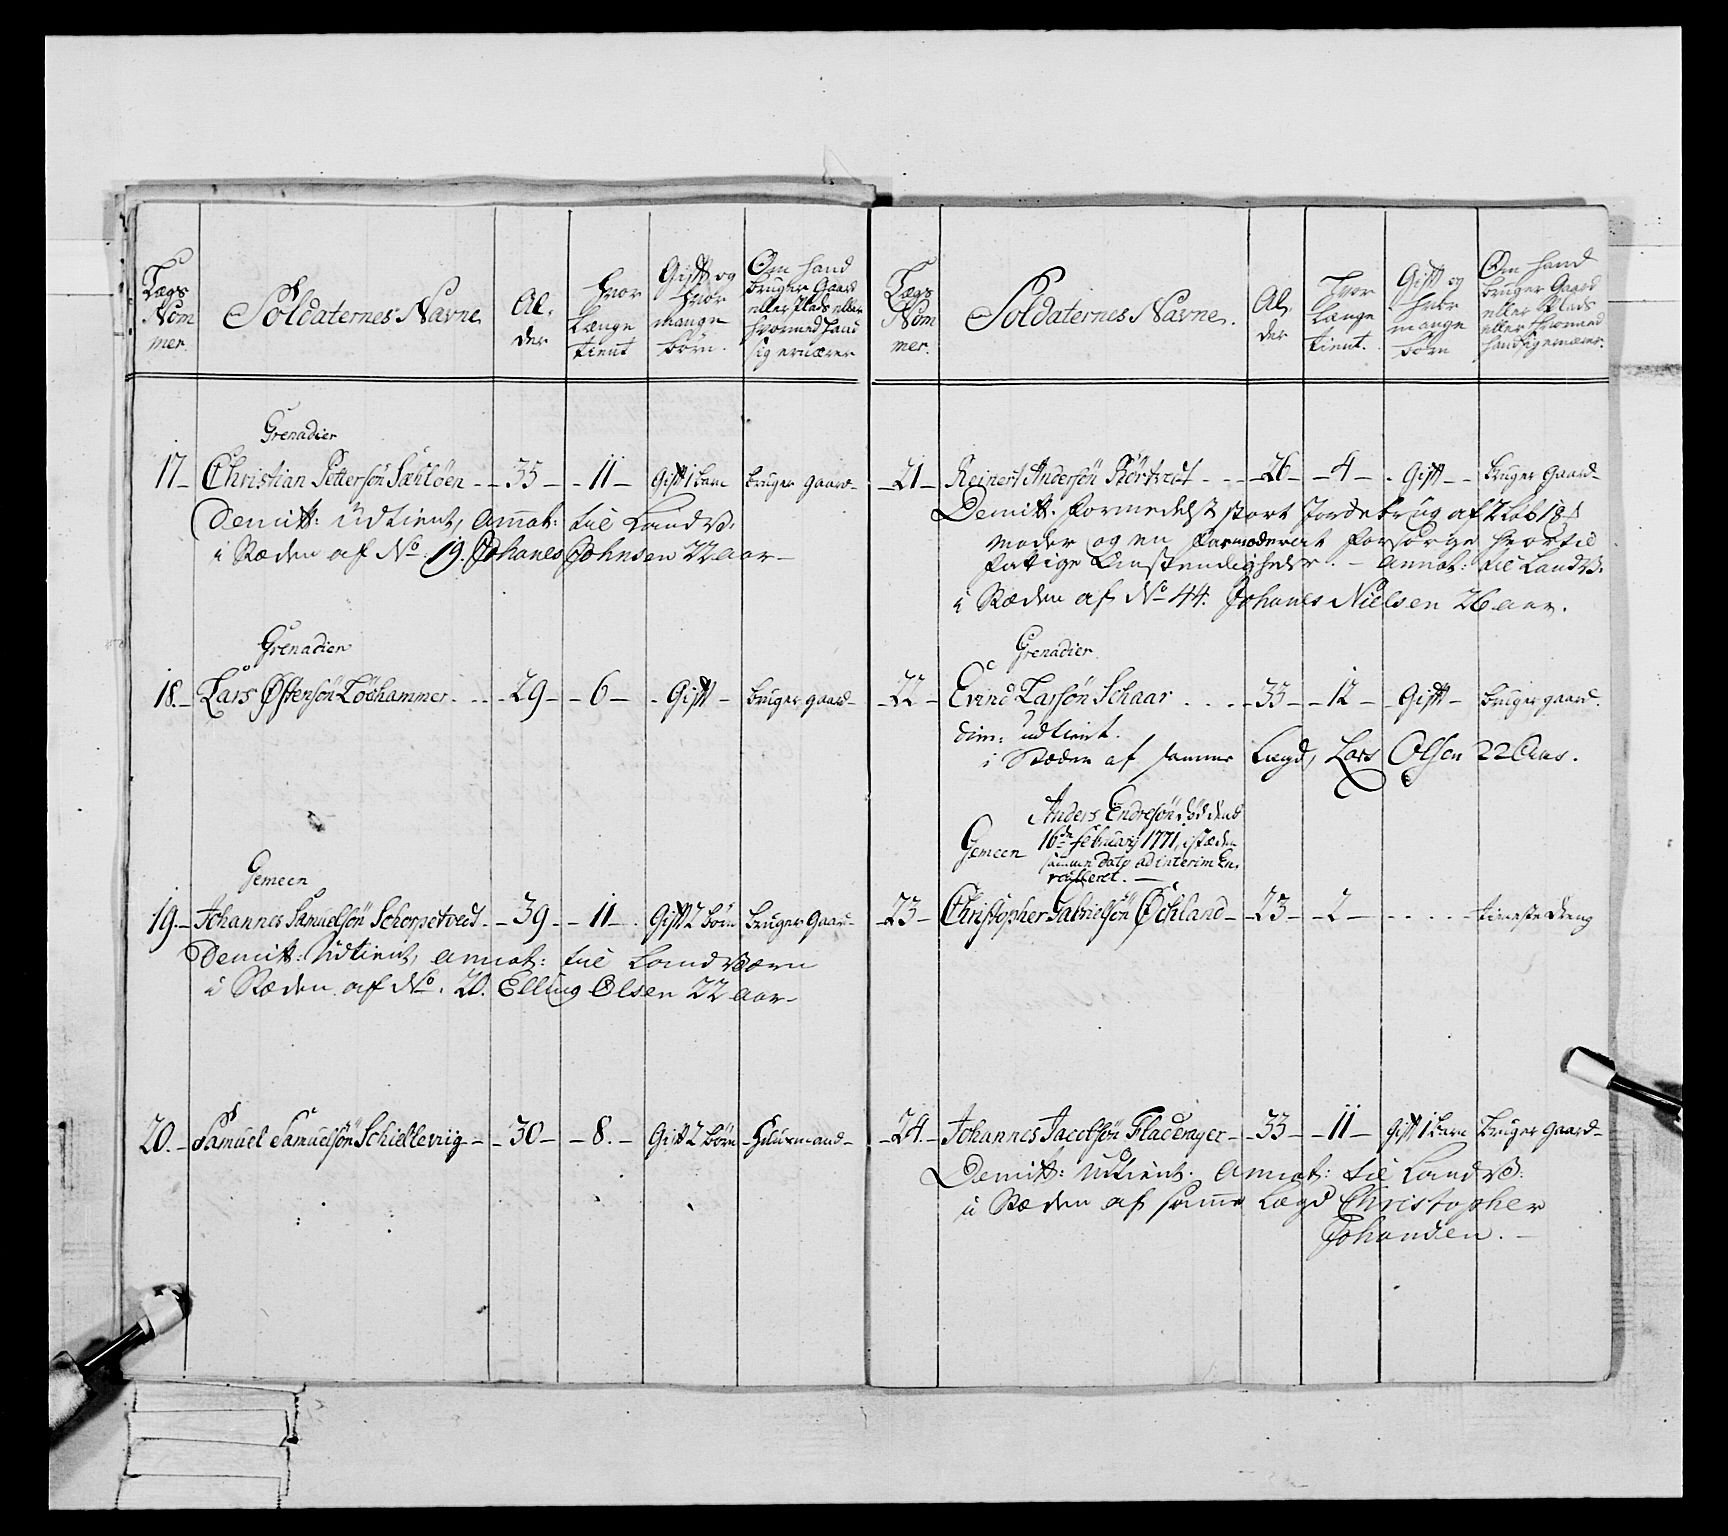 Lægs Nom mer.
Soldaternes Navne
Al, der
Hvor Længe tient
Gift og hvor mange børn.
Om hand bruger Gaard eller Plads eller hvormed hand sig ernærer
Grenadier
17 – Christian Pettersøn - 35 - 11 - Gift 1 barn bruger gaard
Demitt: Udtient, Annot: til Landv:
i Stæden af No. 19. Johanes Johnsen 22 aar –
Grenadier
18. – Lars Østensøn - 29 - 6 - Gift - bruger gaard
Gemeen
19. – Johannes Samuelsøn Schorpetvedt - 39 - 11 - Gift 2 børn bruger Gaard
Demitt: Udtient, annot: til Landværn
i Stæden af No. 20. Elling Olsen 22 aar –
20. – Samuel Samuelsøn Schiellevig - 30 - 8. - Gift 2 børn Huusmand –
Lægs Nom mer.
Soldaternes Navne.
Al, der
Hvor længe tient.
Gift og hvor mange børn
Om hand bruger Gaard eller Plads eller hvormed hand sig ernærer.
– 21 – Reinert Andersøn - 26 - 4 - Gift - bruger Gaard –
Demitt. formedelst stort Jordebrug af
Moder og en forsørge hvortil
fattige Omstendigheder. – Annot: til Landv:
i Stæden af No 44. Johanes Nielsen 26 aar.
Grenadier
– 22 – Evind Larsøn Schaar - 33 - 12 - Gift - bruger gaard.
dim: udtient.
i Stæden af samme Lægd, Lars Olsen 22 Aar.
Anders Endresøn død den
Gemeen 16de February 1771, i stæden
samme Dato ad interim En,
rolleret. –
– 23 – Christopher Gabrielsøn Øchland - 23 - 2 - tienestedreng
– 24. – Johannes Jacobsøn - 33 - 11 - Gift 1 barn bruger gaard –
Demitt: Udtient. Annot: til Landv:
i Stæden af samme Lægd Christopher
Johansen. –